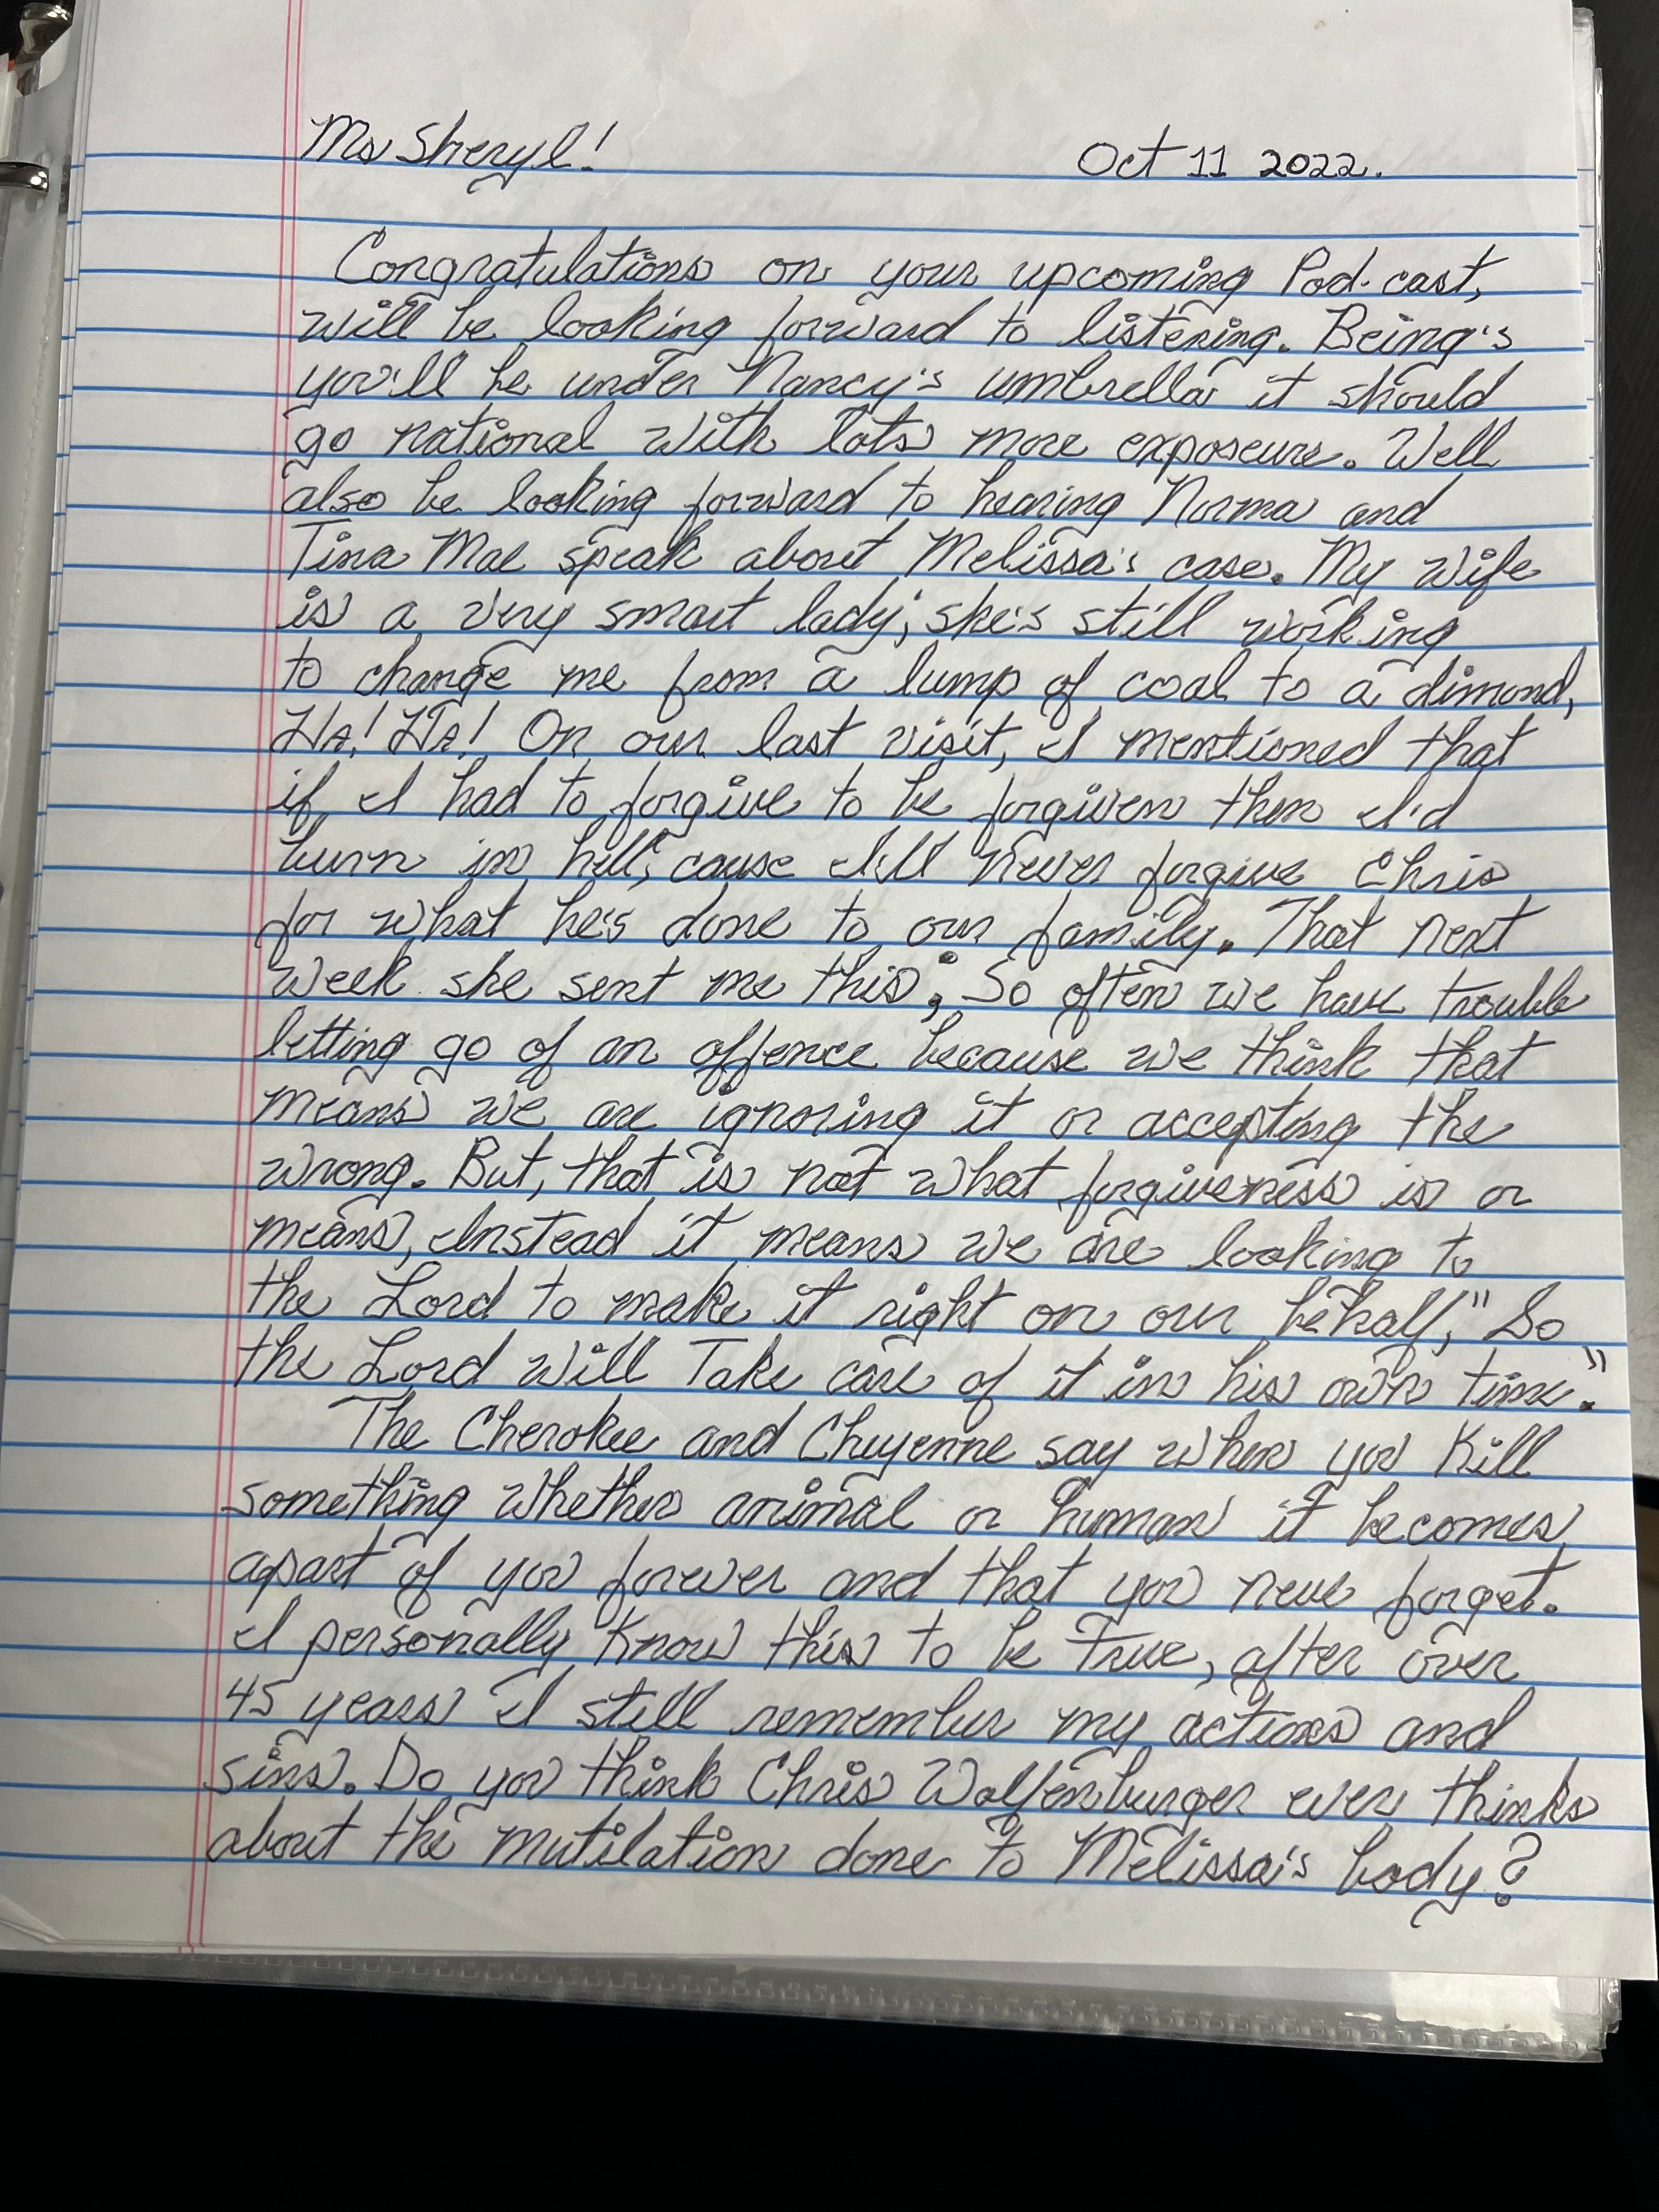 Ms Sheryl! Oct 11 2022.
Congratulations on your upcoming Pod-cast,
will be looking forward to listening. Being's
you'll be under Nancy's umbrella it should
go national with lots more exposeure. Well
also be looking forward to hearing Norma and
Tina Mae speak about Melissa's case. My wife
is a very smart lady; she's still working
to change me from a lump of coal to a dimond,
HA! HA! On our last visit, I mentioned that
if I had to forgive to be forgiven then I'd
burn in hell, cause I'll never forgive Chris
for what he's done to our family. That next
week she sent me this; So often we have trouble
letting go of an offence because we think that
means we are ignoring it or accepting the
wrong. But, that is not what forgiveness is or
means, Instead it means we are looking to
the Lord to make it right on our behalf," So
the Lord will Take care of it in his own time."
The Cherokee and Cheyenne say when you Kill
something whether animal or human it becomes
apart of you forever and that you neve forget.
I personally Know this to be True, after over
45 years I still remember my actions and
sins. Do you think Chris Wolfenburger ever thinks
about the mutilation done to Melissa's body?